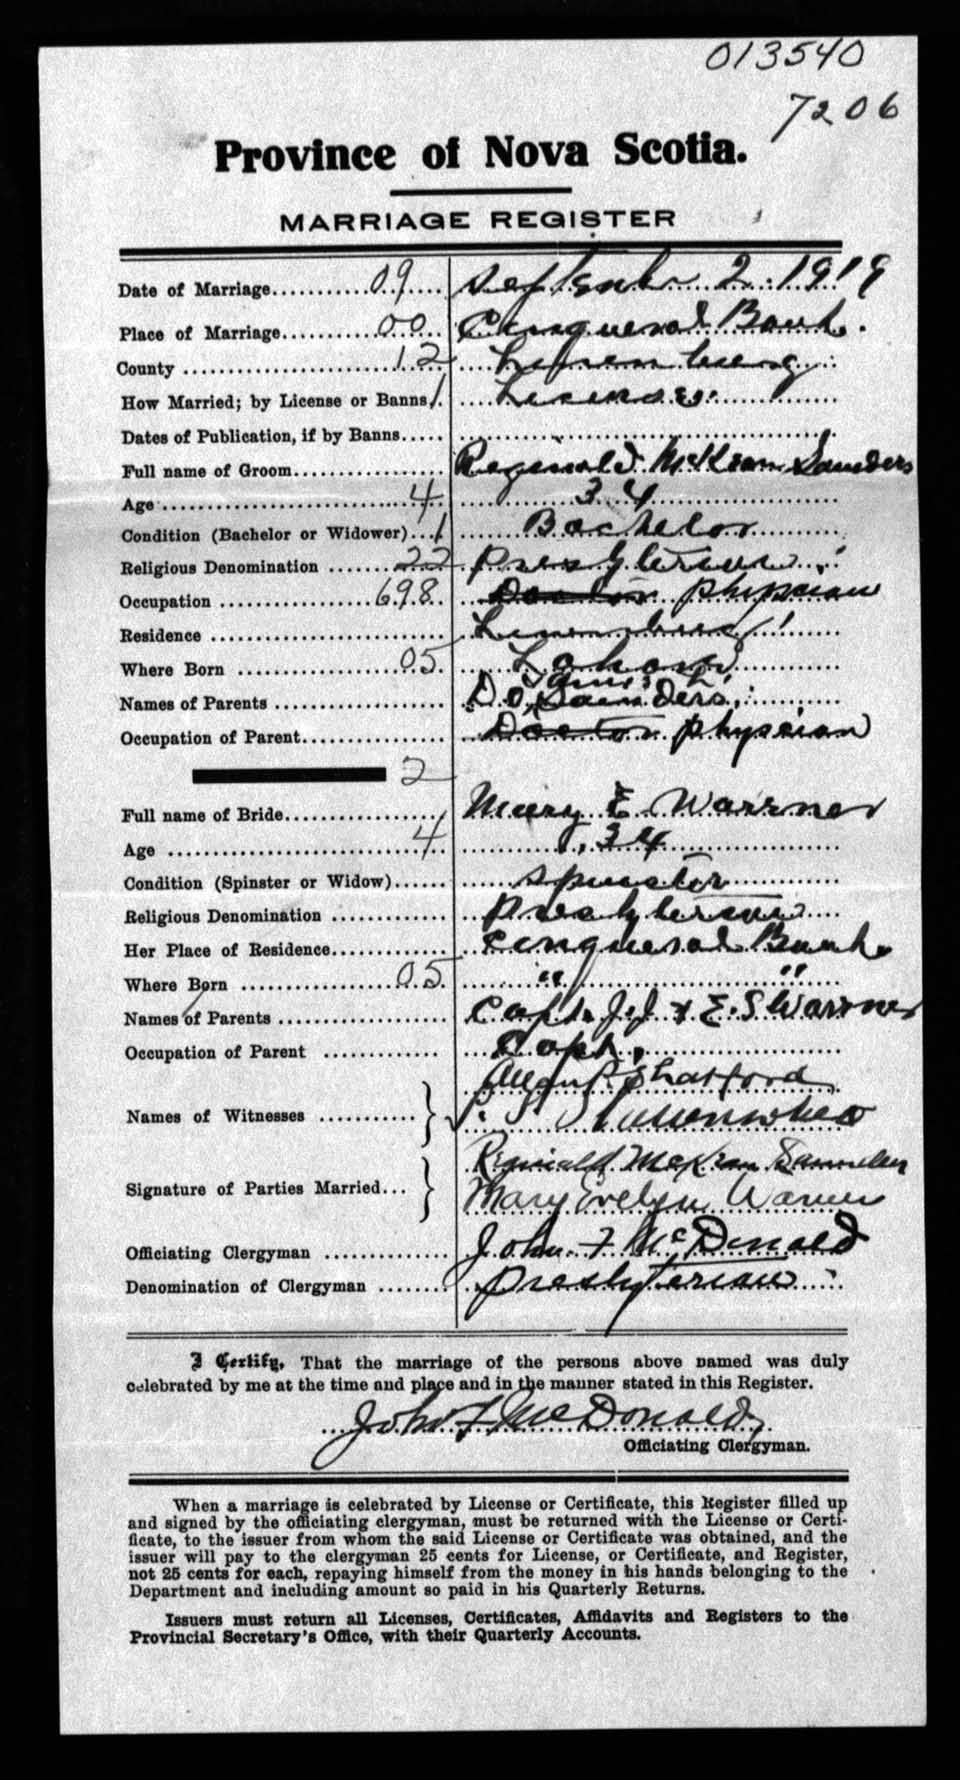 013540
7206
Province of Nova Scotia.
MARRIAGE REGISTER
Date of Marriage 09 September 2. 1919
Place of Marriage 00 Conquerall Bank.
County 12 Lunenburg
How Married; by License or Banns 1 License
Dates of Publication, if by Banns
Full name of Groom Reginald McKean Saunders
Age 4 34
Condition (Bachelor or Widower) 1 Bachelor
Religious Denomination 22 Presbyterian
Occupation 698 Doctor physician
Residence Lunenburg
Where Born 05
Names of Parents Saunders
Occupation of Parent Doctor physician
2
Full name of Bride Mary E Warrner
Age 4 34
Condition (Spinster or Widow) spinster
Religious Denomination Presbyterian
Her Place of Residence Conquerall Bank
Where Born 05 " "
Names of Parents Capt. J.J & E.S Warrner
Occupation of Parent Capt.
Shatford
Names of Witnesses
Reginald McKean Saunders
Signature of Parties Married
Mary Evelyn Warner
Officiating Clergyman John F McDonald
Denomination of Clergyman Presbyterian
I Certify, That the marriage of the persons above named was duly
celebrated by me at the time and place and in the manner stated in this Register.
John F McDonald
Officiating Clergyman.
When a marriage is celebrated by License or Certificate, this Register filled up
and signed by the officiating clergyman, must be returned with the License or Certi-
ficate, to the issuer from whom the said License or Certificate was obtained, and the
issuer will pay to the clergyman 25 cents for License, or Certificate, and Register,
not 25 cents for each, repaying himself from the money in his hands belonging to the
Department and including amount so paid in his Quarterly Returns.
Issuers must return all Licenses, Certificates, Affidavits and Registers to the
Provincial Secretary's Office, with their Quarterly Accounts.